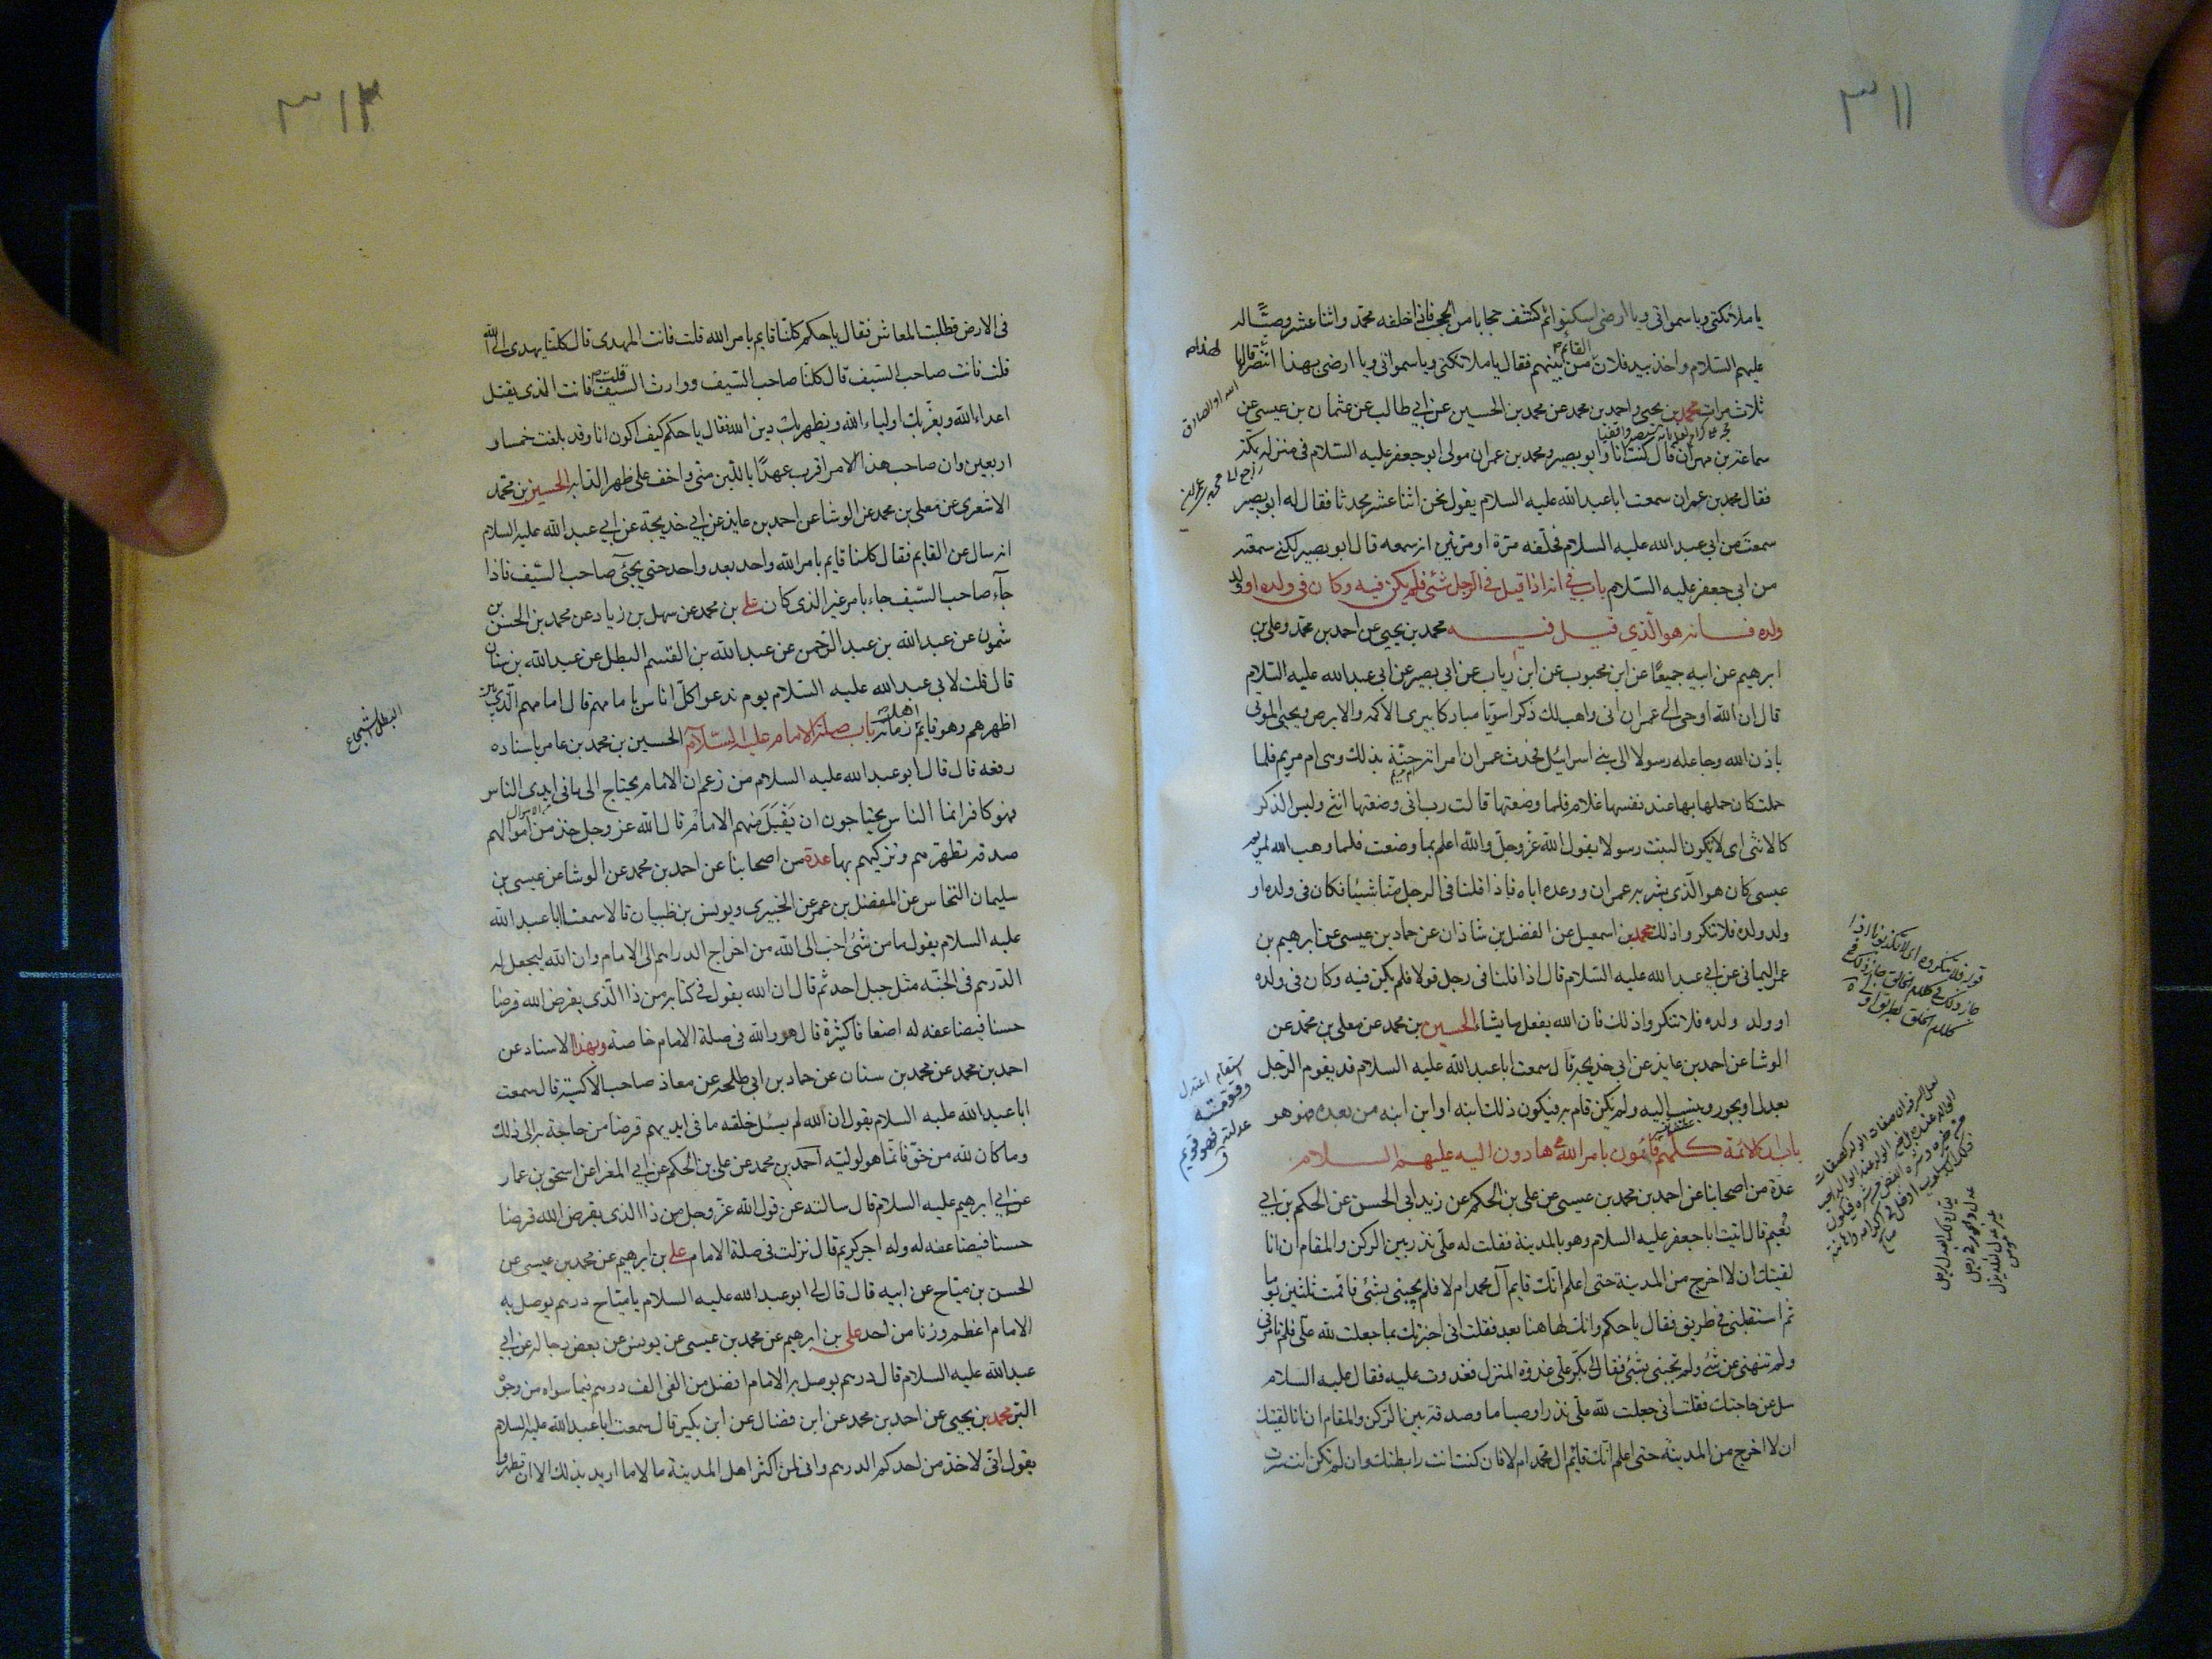 ٣١١
يا ملائكتي ويا سمواتي ويا ارضي اسكنوا ثم كشف حجابا من الحجب فاذا خلفه محمد واثنا عشر وصيا له
عليهم السلام واخذ بيد فلان القائم من بينهم فقال يا ملائكتي ويا سمواتي ويا ارضي بهذا انتصر قالها
ثلاث مرات محمد بن يحيى واحمد بن محمد عن محمد بن الحسين عن ابي طالب عن عثمان بن عيسى عن
سماعة بن مهران قال كنت انا وابو بصير ومحمد بن عمران مولى ابو جعفر عليه السلام في منزله بمكة
فقال محمد بن عمران سمعت ابا عبد الله عليه السلام يقول نحن اثنا عشر محدثا فقال له ابو بصير
سمعت من ابي عبد الله عليه السلام فحلفه مرة او مرتين انه سمعه قال ابو بصير لكني سمعته
من ابي جعفر عليه السلام باب في انه اذا قيل في الرجل شئ فلم يكن فيه وكان في ولده او ولد
ولده فانه هو الذي قيل فيه محمد بن يحيى عن احمد بن محمد وعلي بن
ابرهيم عن ابيه جميعا عن ابن محبوب عن ابن رياب عن ابي بصير عن ابي عبد الله عليه السلام
قال ان الله اوحى الى عمران اني واهب لك ذكرا سويا مباركا يبرى الاكمه والابرص ويحيي الموتى
باذن الله وجاعله رسولا الى بني اسرائيل فحدث عمران امراته حنة بذلك وهي ام مريم فلما
حملت كان حملها بها عند نفسها غلام فلما وضعتها قالت رب اني وضعتها انثى وليس الذكر
كالانثى اي لا يكون البنت رسولا يقول الله عز وجل والله اعلم بما وضعت فلما وهب الله لمريم
عيسى كان هو الذي بشر به عمران ووعده اياه فاذا قلنا في الرجل منا شيئا فكان في ولده او
ولد ولده فلا تنكروا ذلك محمد بن اسمعيل عن الفضل بن شاذان عن حماد بن عيسى عن ابرهيم بن
عمر اليماني عن ابي عبد الله عليه السلام قال اذا قلنا في رجل قولا فلم يكن فيه وكان في ولده
او ولد ولده فلا تنكروا ذلك فان الله يفعل ما يشاء الحسين بن محمد عن معلى بن محمد عن
الوشا عن احمد بن عايذ عن ابي خديجة قال سمعت ابا عبد الله عليه السلام قد يقوم الرجل
بعدل او بجور وينسب اليه ولم يكن قام به فيكون ذلك ابنه او ابن ابنه من بعده فهو هو
باب ان الائمة كلهم قائمون بامر الله هادون اليه عليهم السلام
عدة من اصحابنا عن احمد بن محمد بن عيسى عن علي بن الحكم عن زيد ابي الحسن عن الحكم بن ابي
نعيم قال اتيت ابا جعفر عليه السلام وهو بالمدينة فقلت له علي نذر بين الركن والمقام ان انا
لقيتك ان لا اخرج من المدينة حتى اعلم انك قايم آل محمد ام لا فلم يجبني بشئ فاقمت ثلثين يوما
ثم استقبلني في طريق فقال يا حكم وانك لها هنا بعد فقلت اني اخبرتك بما جعلت لله علي فلم تامرني
ولم تنهني عن شئ ولم تجبني بشئ فقال بكر علي غدوة المنزل فغدوت عليه فقال عليه السلام
سل عن حاجتك فقلت اني جعلت لله علي نذرا وصياما وصدقة بين الركن والمقام ان انا لقيتك
ان لا اخرج من المدينة حتى اعلم انك قايم آل محمد ام لا فان كنت انت رابطتك وان لم تكن انت سرت
استقام اعتدل
وقومته
عدلته فهو قويم
ق
٣١٢
في الارض فطلبت المعاش فقال يا حكم كلنا قايم بامر الله قلت فانت المهدي قال كلنا يهدي الى الله
قلت فانت صاحب السيف قال كلنا صاحب السيف ووارث السيف قلت فانت الذي يقتل
اعداء الله ويعز بك اولياء الله ويظهر بك دين الله فقال يا حكم كيف اكون انا وقد بلغت خمسا و
اربعين وان صاحب هذا الامر اقرب عهدا باللبن مني واخف على ظهر الدابة الحسين بن محمد
الاشعري عن معلى بن محمد عن الوشا عن احمد بن عايذ عن ابي خديجة عن ابي عبد الله عليه السلام
انه سال عن القايم فقال كلنا قايم بامر الله واحد بعد واحد حتى يجئ صاحب السيف فاذا
جاء صاحب السيف جاء بامر غير الذي كان علي بن محمد عن سهل بن زياد عن محمد بن الحسن بن
شمون عن عبد الله بن عبد الرحمن عن عبد الله بن القسم البطل عن عبد الله بن سنان
قال قلت لابي عبد الله عليه السلام يوم ندعوا كل اناس بامامهم قال امامهم الذي بين
اظهرهم وهو قايم اهل زمانه باب صلة الامام عليه السلام الحسين بن محمد بن عامر باسناده
البطل الشجاع
رفعه قال قال ابو عبد الله عليه السلام من زعم ان الامام يحتاج الى ما في ايدي الناس
فهو كافر انما الناس يحتاجون ان يقبل منهم الامام قال الله عز وجل خذ من اموالهم
صدقة تطهرهم وتزكيهم بها عدة من اصحابنا عن احمد بن محمد عن الوشا عن عيسى بن
سليمان النخاس عن المفضل بن عمر عن الخيبري ويونس بن ظبيان قالا سمعنا ابا عبد الله
عليه السلام يقول ما من شئ احب الى الله من اخراج الدراهم الى الامام وان الله ليجعل له
الدرهم في الجنة مثل جبل احد ثم قال ان الله يقول في كتابه من ذا الذي يقرض الله قرضا
حسنا فيضاعفه له اضعافا كثيرة قال هو والله في صلة الامام خاصة وبهذا الاسناد عن
احمد بن محمد عن محمد بن سنان عن حماد بن ابي طلحة عن معاذ صاحب الاكسية قال سمعت
ابا عبد الله عليه السلام يقول ان الله لم يسئل خلقه ما في ايديهم قرضا من حاجة به الى ذلك
وما كان لله من حق فانما هو لوليه احمد بن محمد عن علي بن الحكم عن ابي المغرا عن اسحق بن عمار
عن ابي ابرهيم عليه السلام قال سالته عن قول الله عز وجل من ذا الذي يقرض الله قرضا
حسنا فيضاعفه له وله اجر كريم قال نزلت في صلة الامام علي بن ابرهيم عن محمد بن عيسى عن
الحسن بن مياح عن ابيه قال قال لي ابو عبد الله عليه السلام يا مياح درهم يوصل به
الامام اعظم وزنا من احد علي بن ابرهيم عن محمد بن عيسى عن يونس عن بعض رجاله عن ابي
عبد الله عليه السلام قال درهم يوصل به الامام افضل من الفي الف درهم فيما سواه من وجوه
البر محمد بن يحيى عن احمد بن محمد عن ابن فضال عن ابن بكير قال سمعت ابا عبد الله عليه السلام
يقول اني لآخذ من احدكم الدرهم واني لمن اكثر اهل المدينة مالا ما اريد بذلك الا ان تطهروا